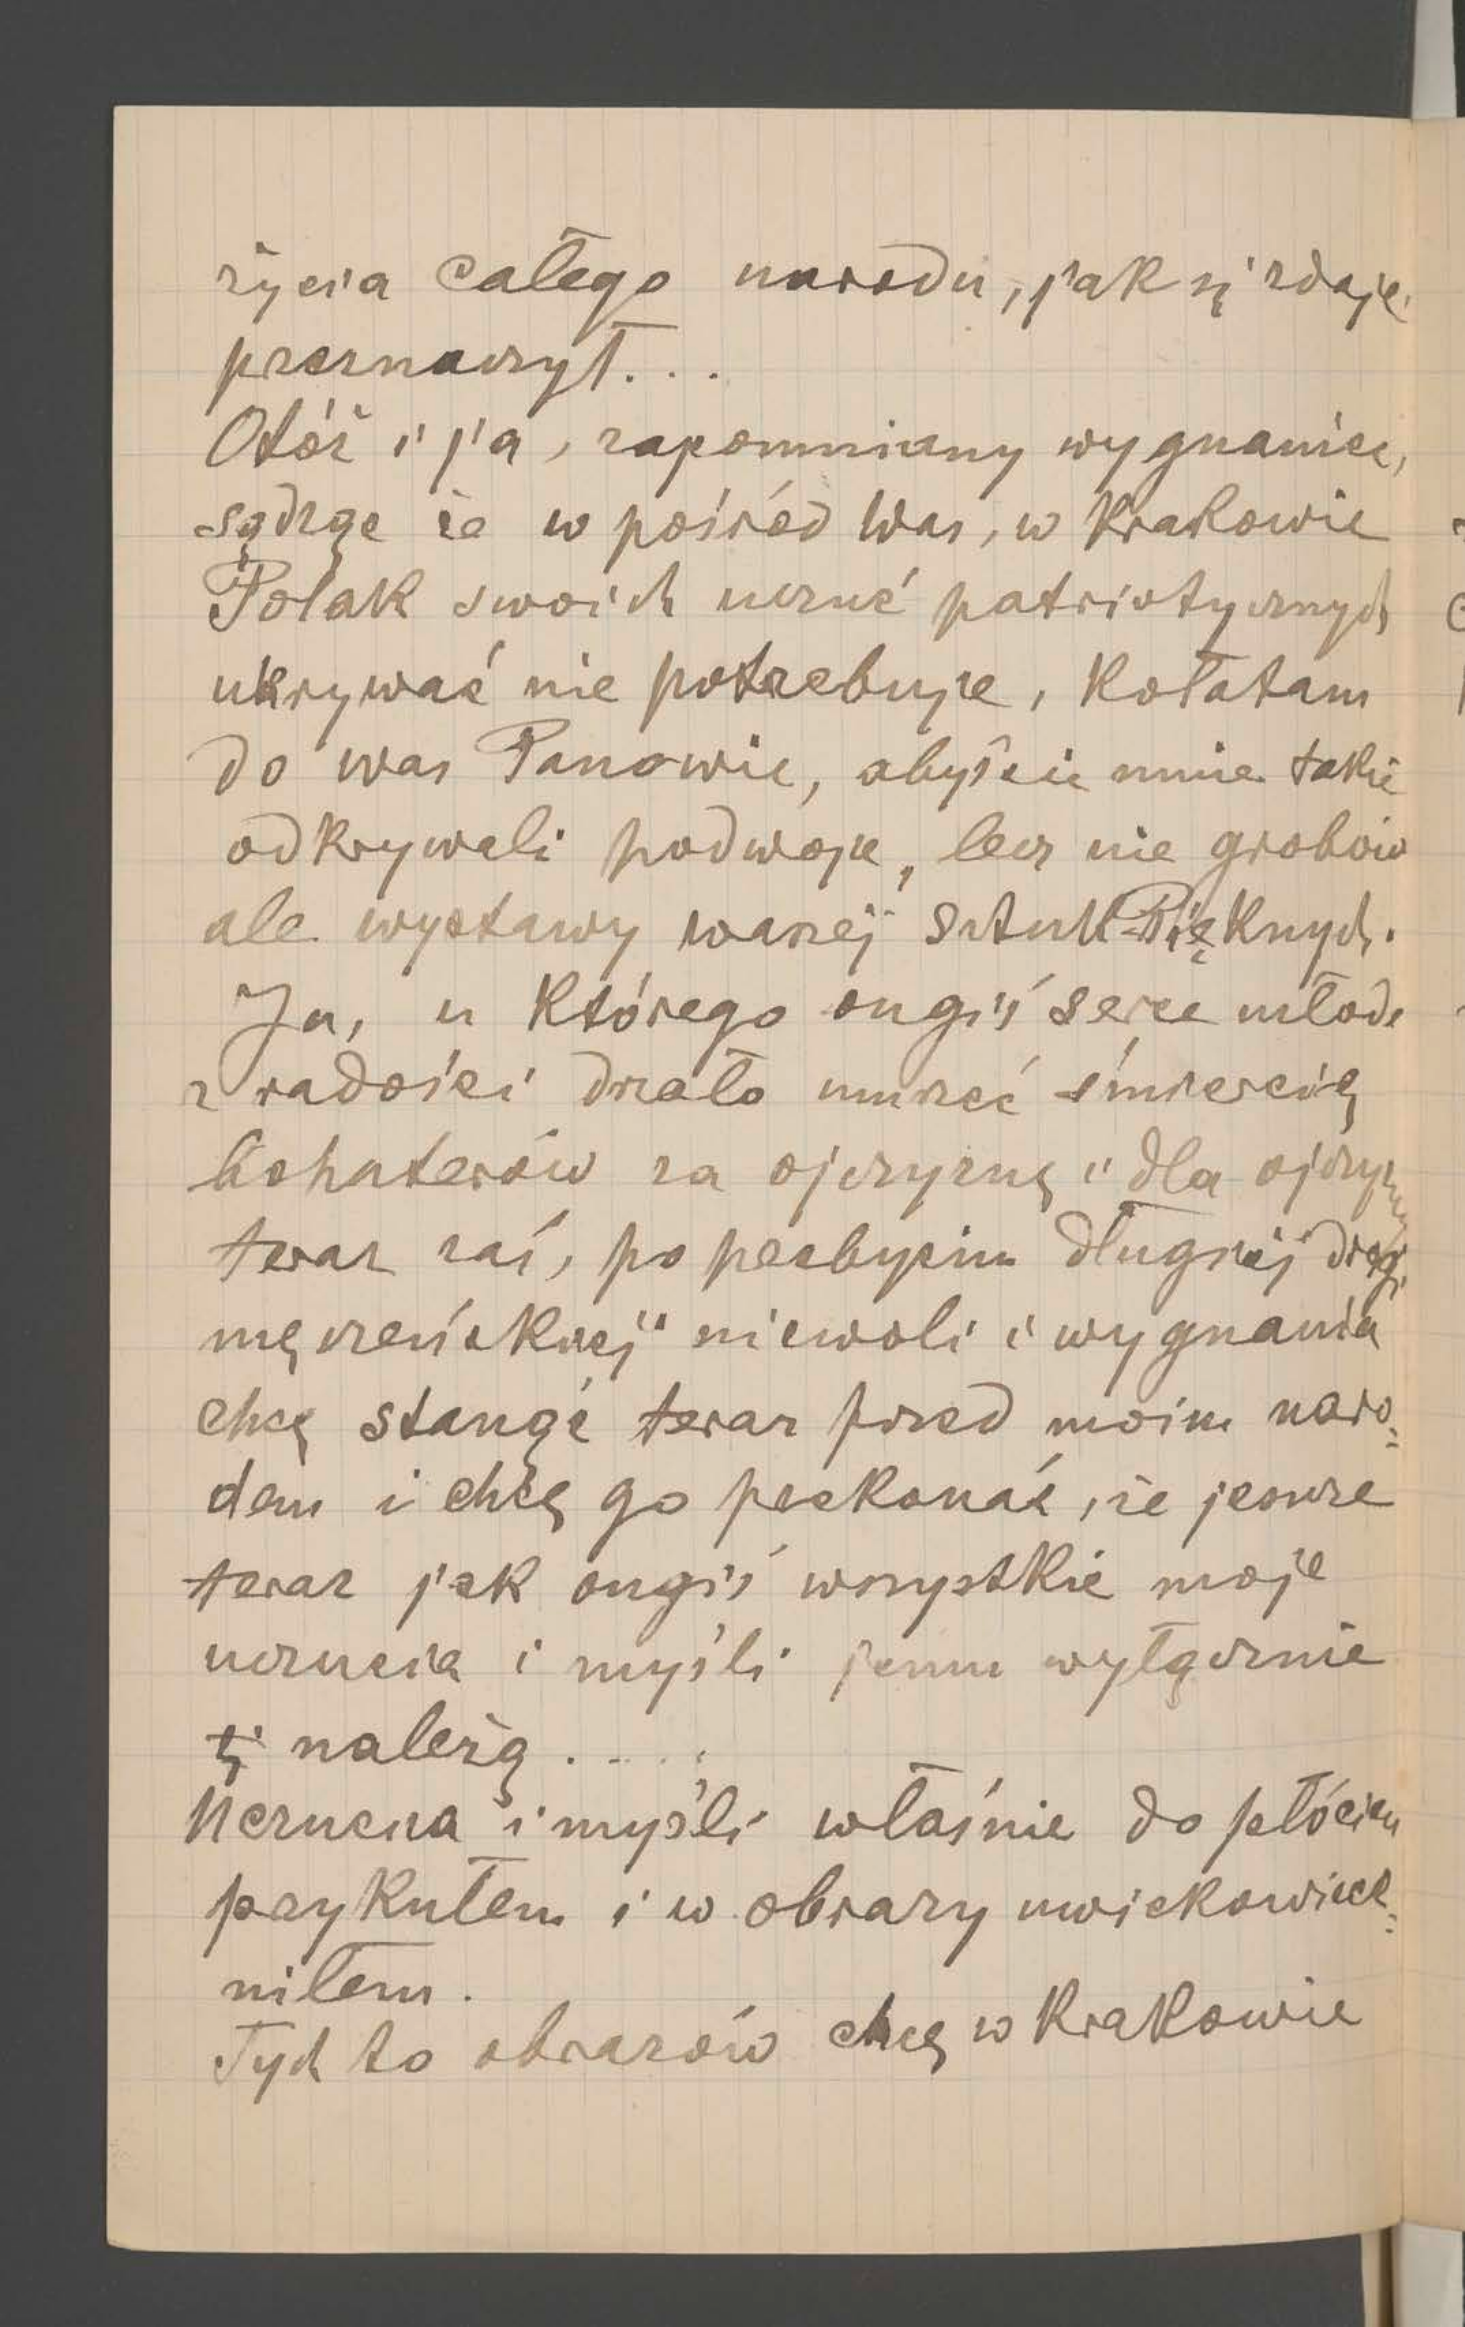 życia całego narodu, jak się zdaje,
przeznaczył...
Otóż i ja, zapomniany wygnaniec,
sądzgc że w pośród Was, w Krakowie
Polak swoich uczuć patriotycznych
ukrywać nie potrzebuje, kołatam
do was Panowie, abyście mnie takie
odkrywali podwoje, lecz nie grobów
ale wystawy waszej Sztuk Pięknych.
Ja, u którego ongiś serce młode
z radości drżało umrzeć śmiercią
bohaterów za ojczyznę i dla ojczyzny
teraz zaś, po przebyciu długiej drogi
męczeńskiej niewoli i wygnania
chcę stanąć teraz przed moim naro=
dem i chcę go przekonać, że jeszcze
teraz jak ongiś wszystkie moje
uczucia i myśli jemu wyłącznie
należą.....
Uczucia i myśli właśnie do płócien
przykułem i w obrazy uwiekowiecz=
niłem.
Tych to obrazów chcę w Krakowie